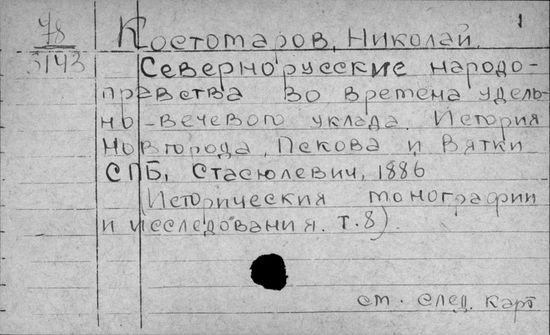 78
5143
1
Костомаров, Николай.
Севернорусские народо-
правства во времена удель-
но-вечевого уклада. История
Новгорода, Пскова и Вятки
СПБ, Стасюлевич, 1886
(Исторические монографии
и исследования. т.8).
см. след. карт